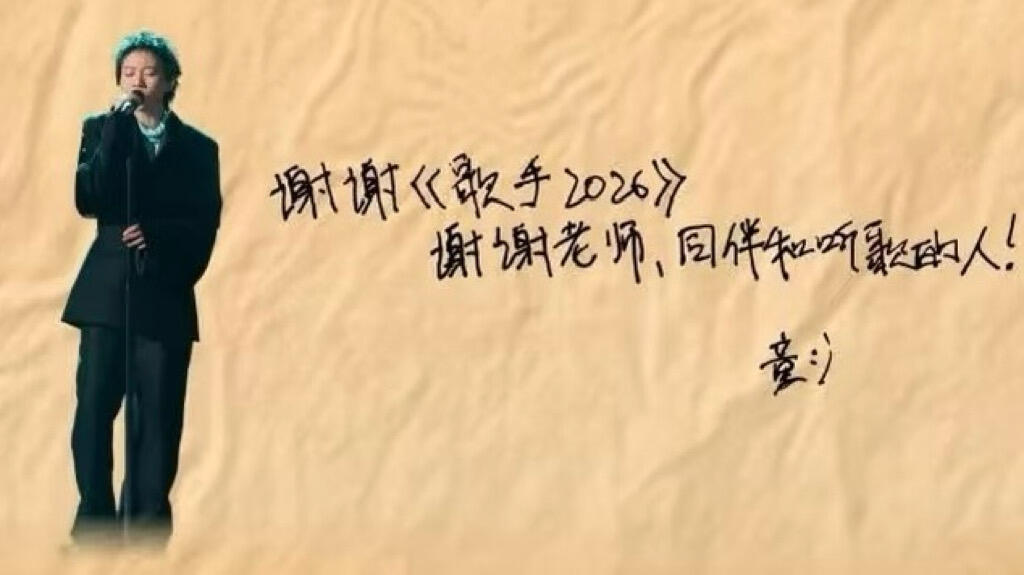 谢谢《歌手2026》
谢谢老师、同伴和听歌的人!
童:)